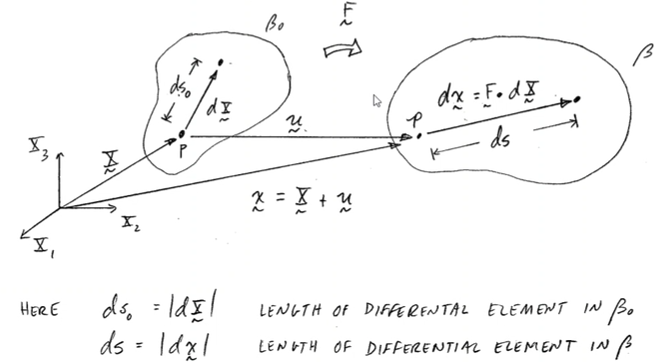 β₀
F̰
β
ds₀
dX̰
dx̰ = F̰ · dX̰
P
ṵ
p
ds
X₃
X̰
x̰ = X̰ + ṵ
X₂
X₁
HERE ds₀ = |dX̰| LENGTH OF DIFFERENTAL ELEMENT IN β₀
ds = |dx̰| LENGTH OF DIFFERENTIAL ELEMENT IN β